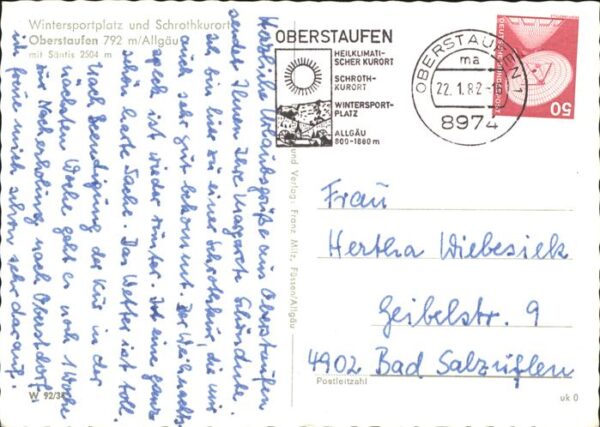 Wintersportplatz und Schrothkurort
Oberstaufen 792 m/Allgäu
mit Säntis 2504 m
Herzliche Urlaubsgrüße aus Oberstaufen
sendet Ihnen Ihre Margarete
Ich bin hier zu einer Schrothkur, die mir
auch sehr gut bekommt. Der Weihnachts-
speck ist wieder runter. Ist eine ganz
schön harte Sache. Das Wetter ist toll.
Nach Beendigung der Kur in der
nächsten Woche geht es noch 1 Woche
zur Nacherholung nach Oberstdorf.
Ich freue mich schon sehr darauf.
W 92/34
und Verlag: Franz Milz, Füssen/Allgäu
OBERSTAUFEN
HEILKLIMATI-
SCHER KURORT
SCHROTH-
KURORT
WINTERSPORT-
PLATZ
ALLGÄU
800-1880 m
OBERSTAUFEN 1
ma
22.1.82
8974
DEUTSCHE BUNDESPOST
50
Frau
Hertha Wiebesiek
Geibelstr. 9
4902 Bad Salzuflen
Postleitzahl
uk 0